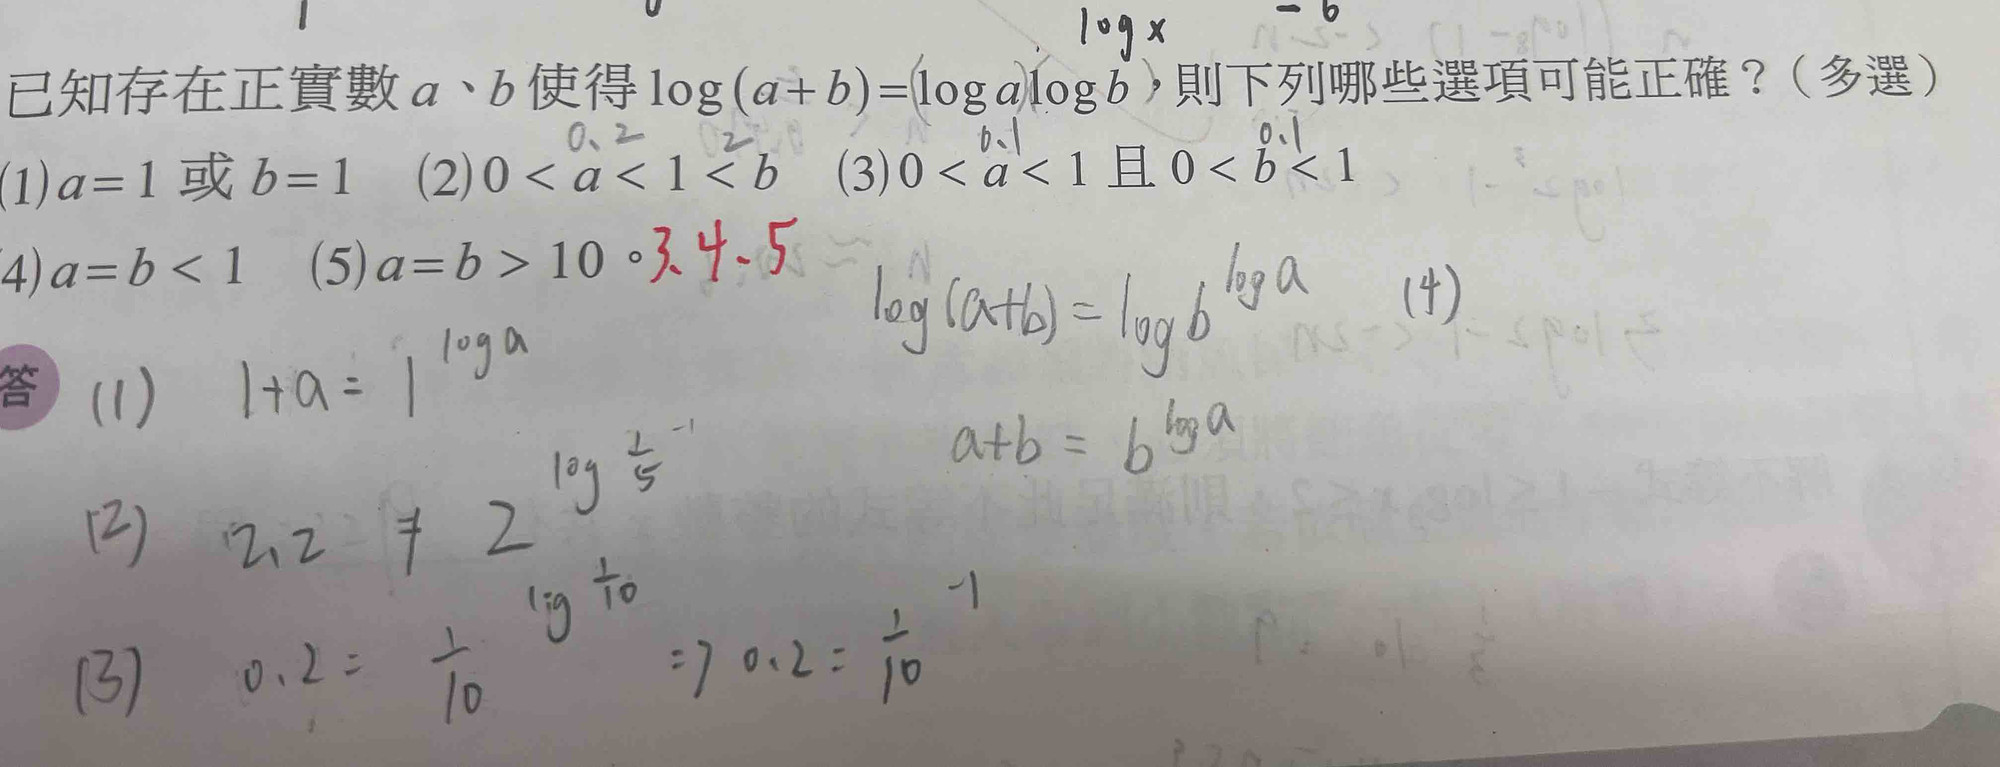 log x - 6
已知存在正實數 a、b 使得 log(a+b)=(log a)log b，則下列哪些選項可能正確？（多選）
0.2 2 0.1 0.1
(1) a=1 或 b=1 (2) 0<a<1<b (3) 0<a<1 且 0<b<1
(4) a=b<1 (5) a=b>10。3、4、5
log(a+b) = log b^{log a} (4)
答 (1) 1+a = 1^{log a}
a+b = b^{log a}
(2) 2.2 ≠ 2^{log 1/5^{-1}}
(3) 0.2 = 1/10^{log 1/10} => 0.2 = 1/10^{-1}